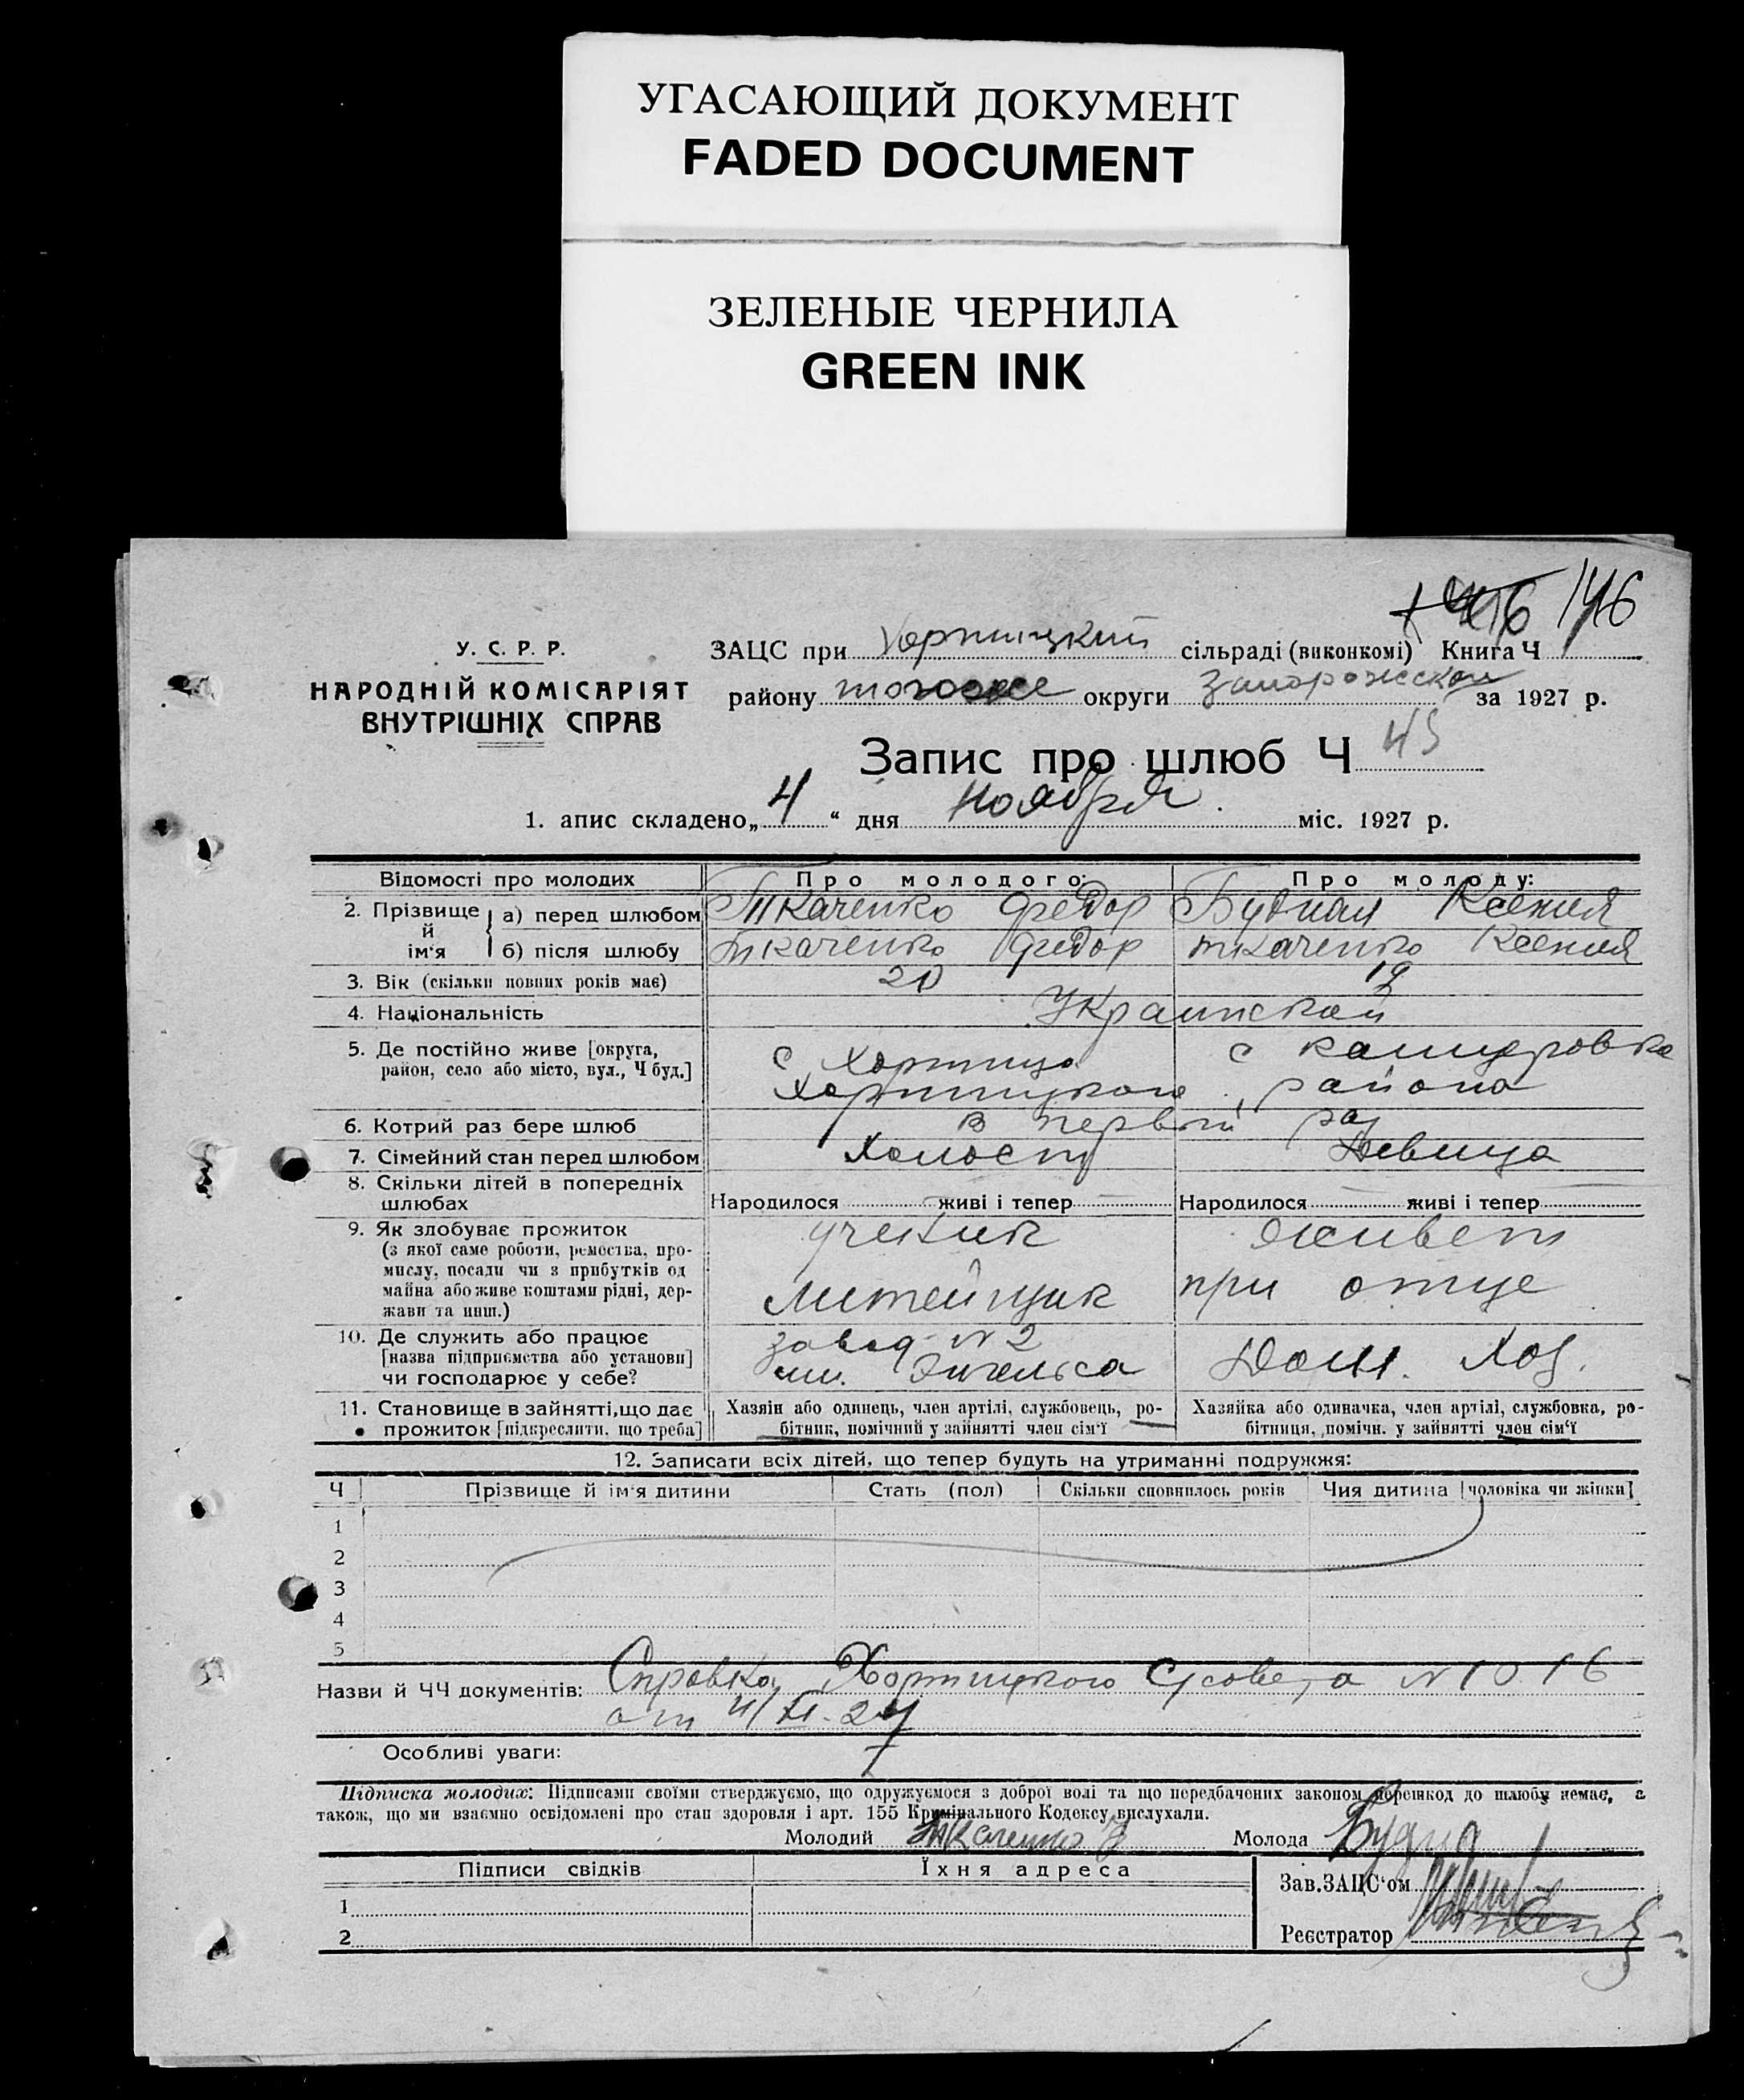 УГАСАЮЩИЙ ДОКУМЕНТ
FADED DOCUMENT
ЗЕЛЕНЫЕ ЧЕРНИЛА
GREEN INK
146
У. С. Р. Р.
НАРОДНІЙ КОМІСАРІЯТ
ВНУТРІШНІХ СПРАВ
ЗАЦС при Хортицкий сільраді (виконкомі) Книга Ч
району того же округи Запорожской за 1927 р.
Запис про шлюб Ч 45
1. апис складено „4“ дня ноября міс. 1927 р.
Відомості про молодих Про молодого: Про молоду:
2. Прізвище й ім'я а) перед шлюбом Ткаченко Федор Будная Ксения
б) після шлюбу Ткаченко Федор Ткаченко Ксения
3. Вік (скільки повних років має) 20 19
4. Національність Украинской
5. Де постійно живе [округа, с Хортица с
район, село або місто, вул., Ч буд.] Хортицкого района
6. Котрий раз бере шлюб В первый раз
7. Сімейний стан перед шлюбом Холост Девица
8. Скільки дітей в попередніх
шлюбах Народилося живі і тепер Народилося живі і тепер
9. Як здобуває прожиток ученик живет
(з якої саме роботи, ремества, про-
мислу, посади чи з прибутків од
майна або живе коштами рідні, дер- Литейщик при отце
жави та инш.)
10. Де служить або працює завод N 2
[назва підприємства або установи] им. Энгельса Дом. Хоз.
чи господарює у себе?
11. Становище в зайнятті, що дає Хазяін або одинець, член артілі, службовець, ро- Хазяйка або одиначка, член артілі, службовка, ро-
прожиток [підкреслити, що треба] бітник, помічний у зайнятті член сім'ї бітниця, помічн. у зайнятті член сім'ї
12. Записати всіх дітей, що тепер будуть на утриманні подружжя:
Ч Прізвище й ім'я дитини Стать (пол) Скільки сповнилось років Чия дитина [чоловіка чи жінки]
1
2
3
4
5
Назви й ЧЧ документів: Справка Хортицкого С/совета N 1016
от 4/XI-27
Особливі уваги:
Підписка молодих: Підписами своїми стверджуємо, що одружуємося з доброї волі та що передбачених законом перешкод до шлюбу немає, а
також, що ми взаємно освідомлені про стан здоровля і арт. 155 Кримінального Кодексу вислухали.
Молодий Ткаченко Молода Будна
Підписи свідків Їхня адреса
Зав. ЗАЦС'ом
1
Реєстратор
2